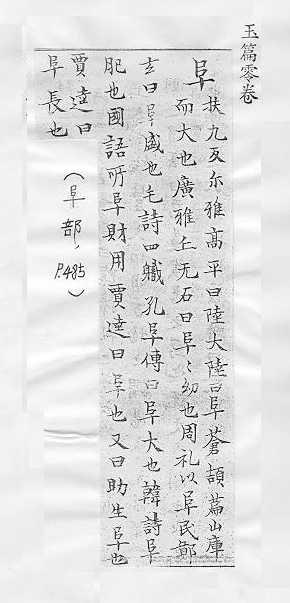 玉篇零卷
阜扶九反尔雅高平曰陸大陸曰阜蒼頡篇山庫
而大也廣雅丘无石曰阜〻幼也周礼以阜民鄭
玄曰阜盛也毛詩四驖孔阜傳曰阜大也韓詩阜
肥也國語所阜財用賈逵曰阜也又曰助生阜也
賈逵曰
阜長也
(阜部,P.485)